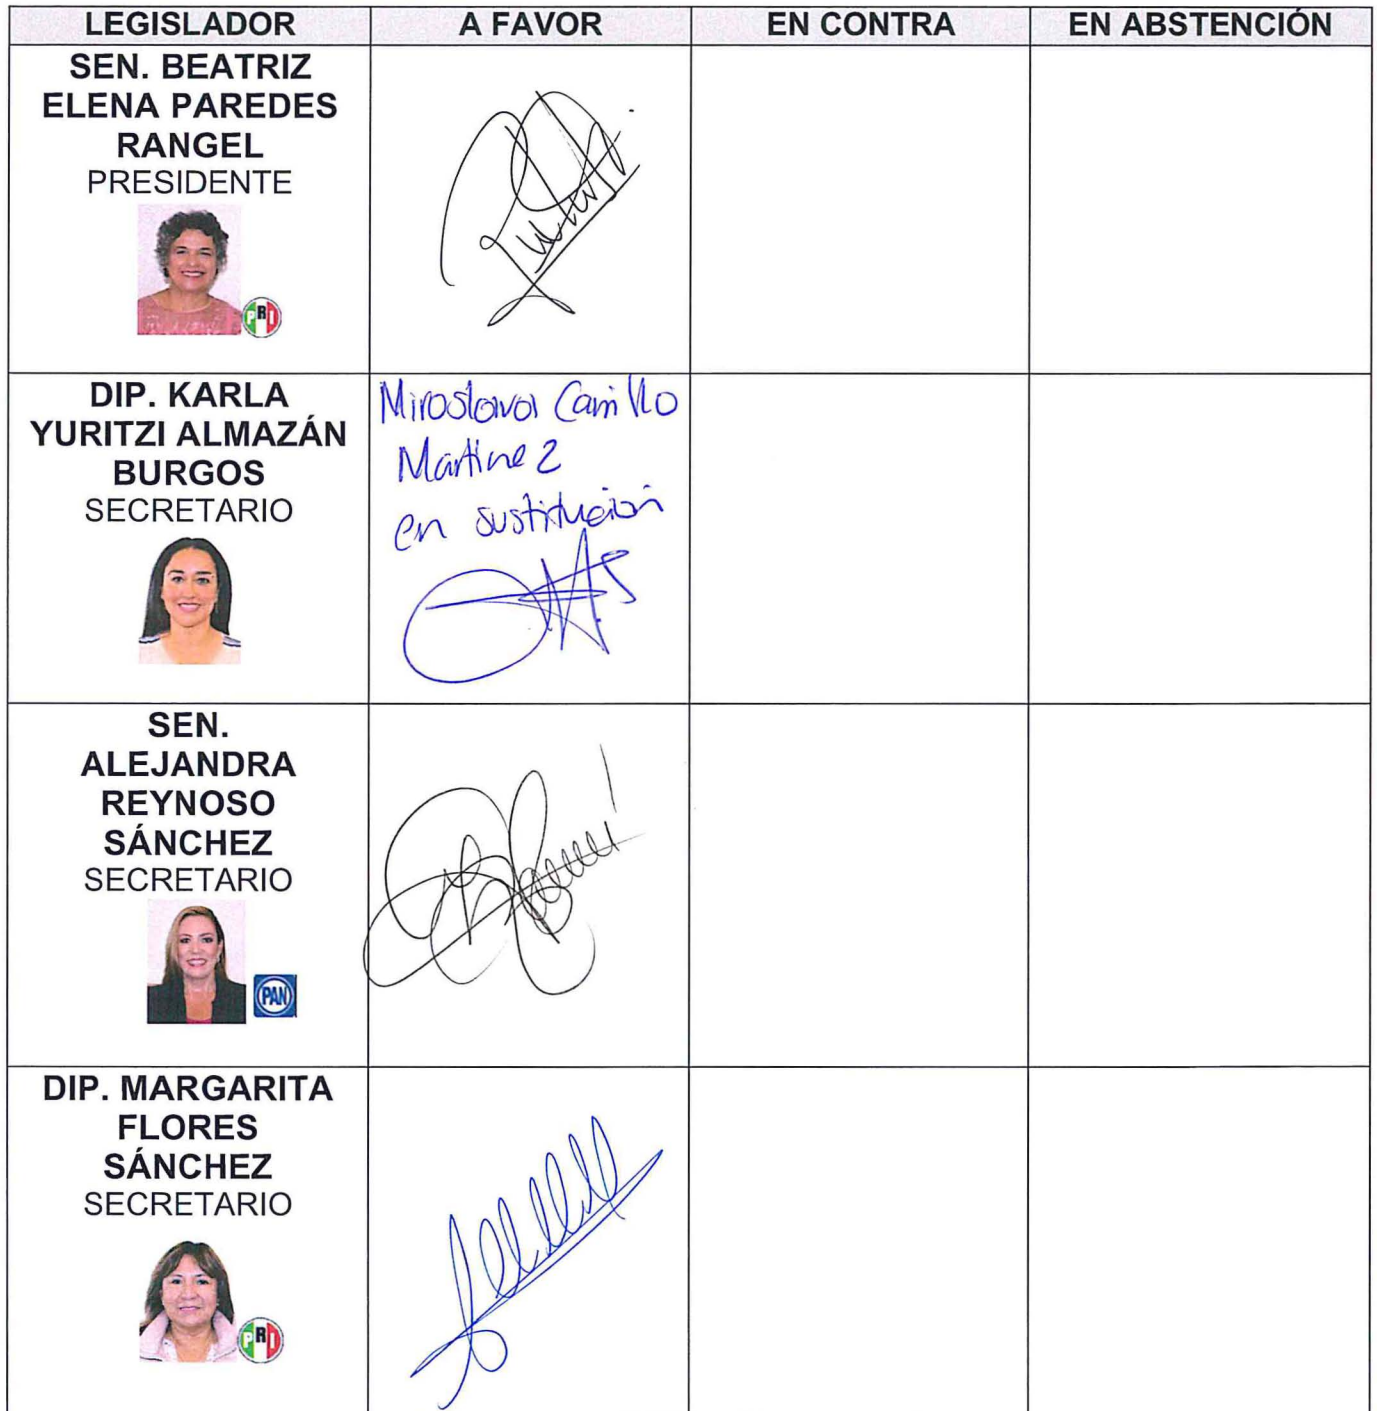 LEGISLADOR A FAVOR EN CONTRA EN ABSTENCIÓN
SEN. BEATRIZ
ELENA PAREDES
RANGEL
PRESIDENTE
PRI
DIP. KARLA
YURITZI ALMAZÁN
BURGOS
SECRETARIO
Miroslava Carrillo
Martinez
en sustitución
SEN.
ALEJANDRA
REYNOSO
SÁNCHEZ
SECRETARIO
PAN
DIP. MARGARITA
FLORES
SÁNCHEZ
SECRETARIO
PRI